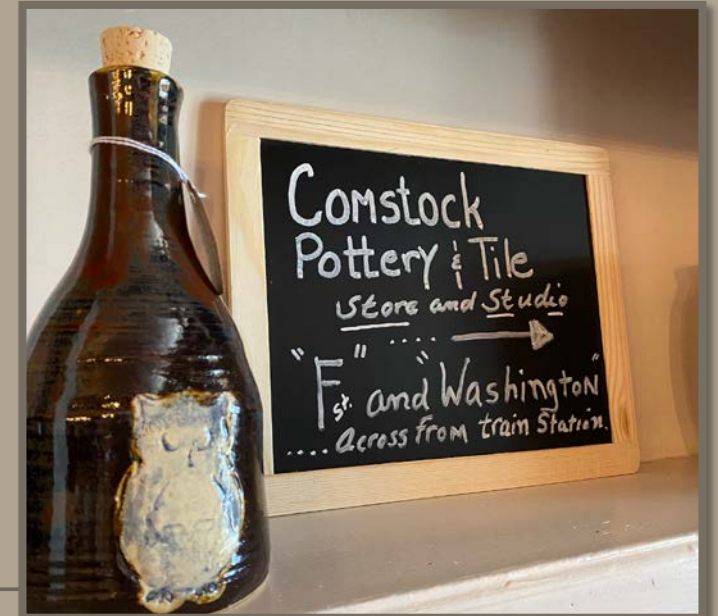 Comstock
Pottery & Tile
Store and Studio
....
"F" st. and "Washington"
.... across from train Station.